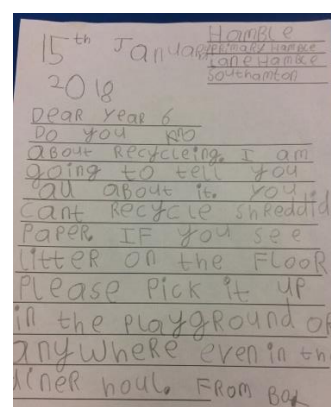 15th January
2018
Hamble
Primary Hamble
Lane Hamble
Southamton
Dear Year 6
Do you kno
about Recycleing. I am
going to tell you
all about it. you
cant Recycle shreddid
Paper. If you see
litter on the Floor
Please Pick it up
in the Playground or
anywhere even in th
diner houl. From